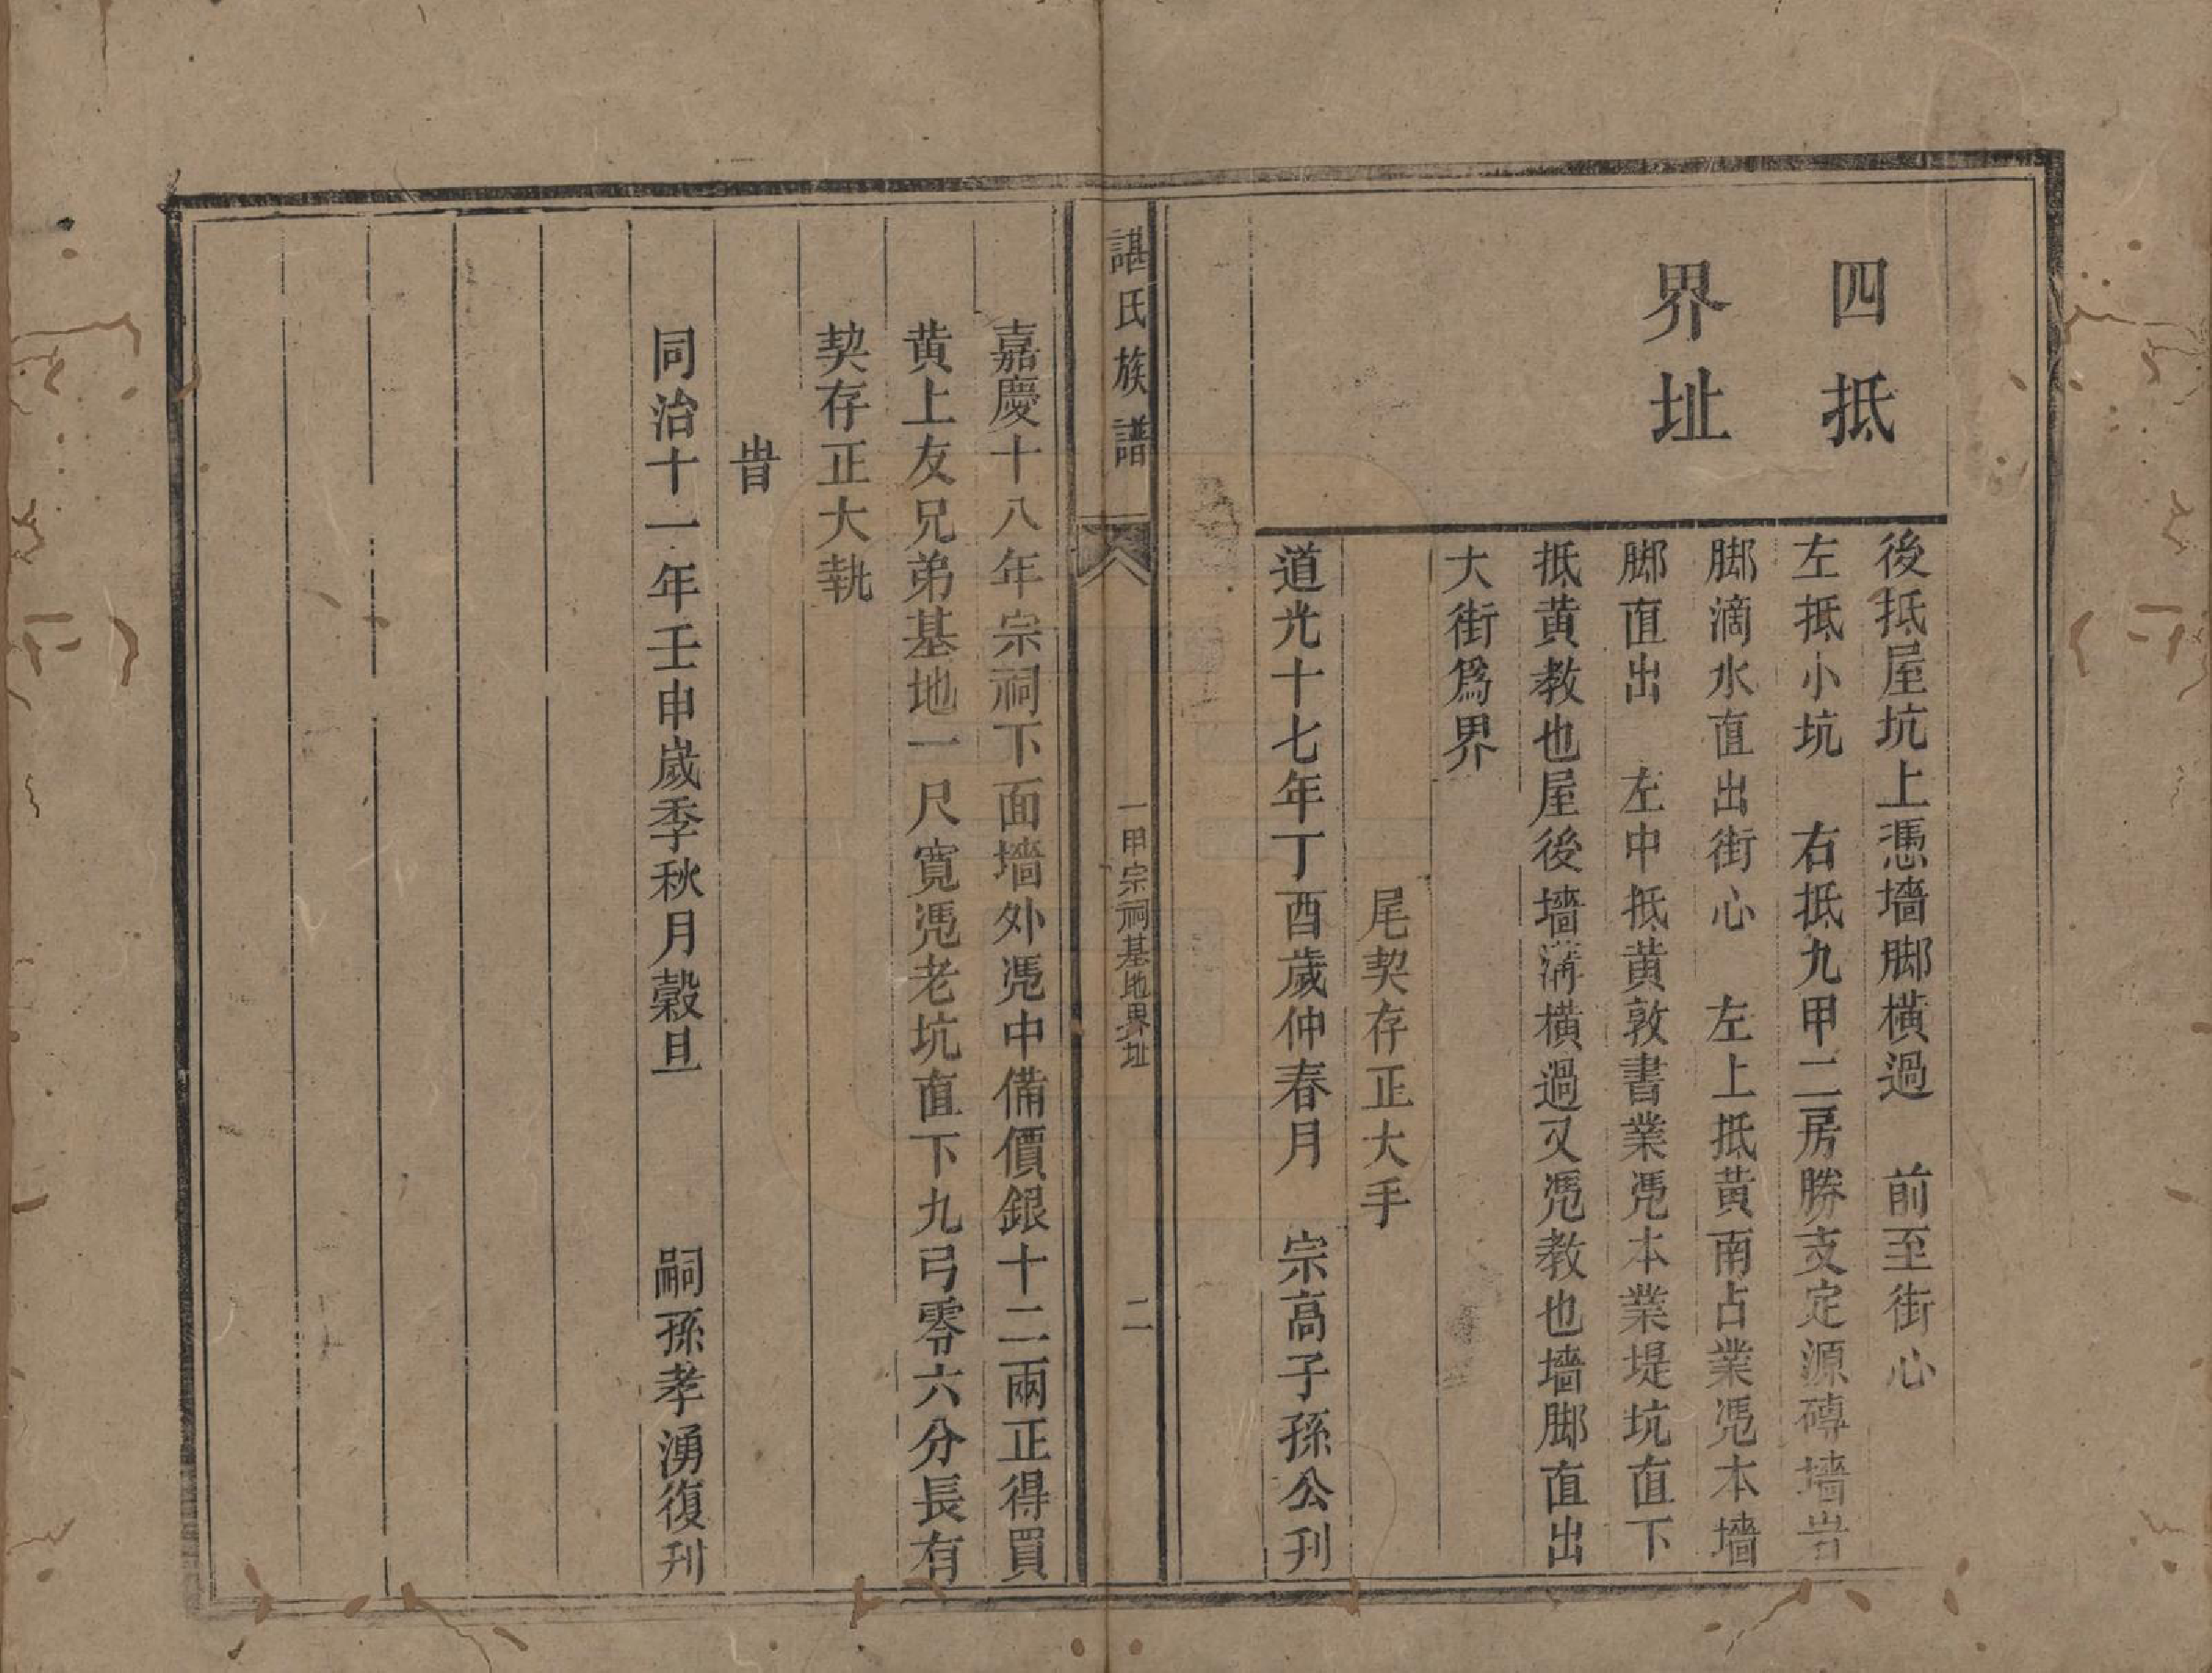 四抵
界址
後抵屋坑上憑墻脚橫過　前至街心
左抵小坑　右抵九甲二房勝支定源磚墻旹
脚滴水直出街心　左上抵黃南占業凴本墻
脚直出　左中抵黃敦書業凴本業堤坑直下
抵黃教也屋後墻溝橫過又凴教也墻脚直出
大街爲界
尾契存正大手
道光十七年丁酉歲仲春月　宗高子孫公刋
諶氏族譜
一甲宗祠基地界址
二
嘉慶十八年宗祠下面墻外凴中備價銀十二兩正得買
黃上友兄弟基地一尺寬凴老坑直下九弓零六分長有
契存正大執
旹
同治十一年壬申歲季秋月穀旦　嗣孫孝湧復刋